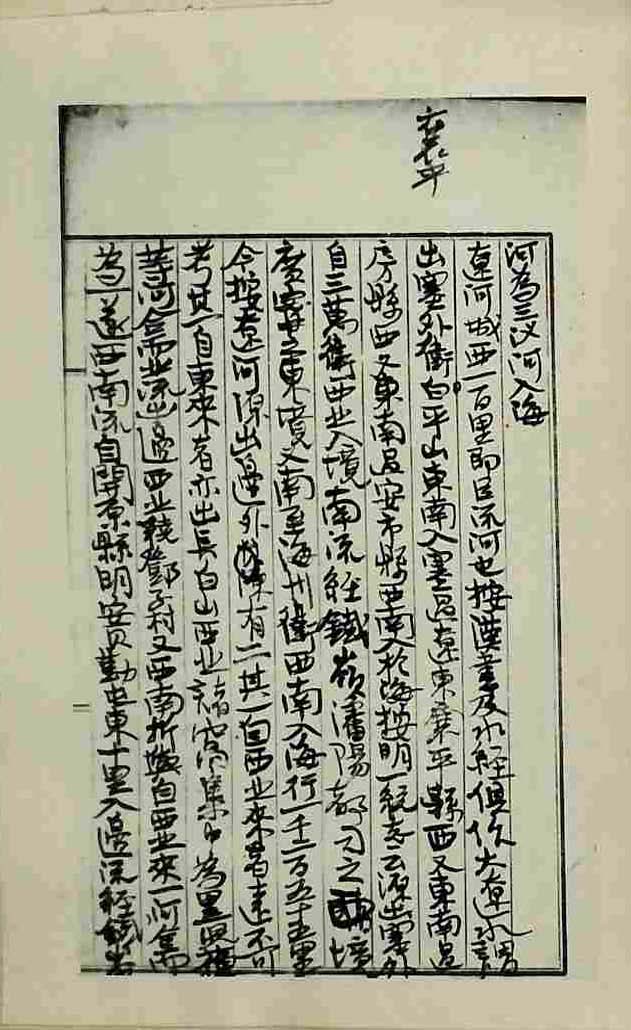 襄平
河為三汊河入海
遼河城西一百里即巨流河也按漢書及水經俱作大遼水謂
出塞外衛白平山東南入塞過遼東襄平縣西又東南過
房縣西又東南過安市縣西南入於海按明一統志云源出塞外
自三萬衛西北入境南流經鐵嶺瀋陽都司之西境
廣寧之東境又南至海州衛西南入海行一千二百五十五里
今按遼河源出邊外有二其一自西北來者遠不可
考其一自東來者亦出長白山西北諸窩集中為黑
等河合而北流出邊西北繞鄧子村又西南折與自西北來一河會而
為一遂西南流自開原縣明安貝勒屯東十里入邊流經鐵嶺